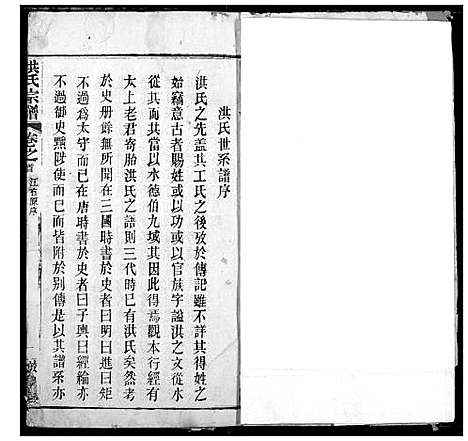 洪氏世系譜序
洪氏之先蓋其工氏之後攷於傳記雖不詳其得姓之
始竊意古者賜姓或以功或以官族字謚洪之文從水
從其而其當以水德伯九域其因此得焉觀本行經有
太上老君寄胎洪氏之語則三代時已有洪氏矣然考
於史册鮮有聞焉在三國時書於史者曰明曰進曰矩
不過爲太守而已在唐時書於史者曰子輿曰經綸亦
不過御史黜陟使而已皆附於別傳是以其譜系亦
洪氏宗譜
卷之首
江右原序